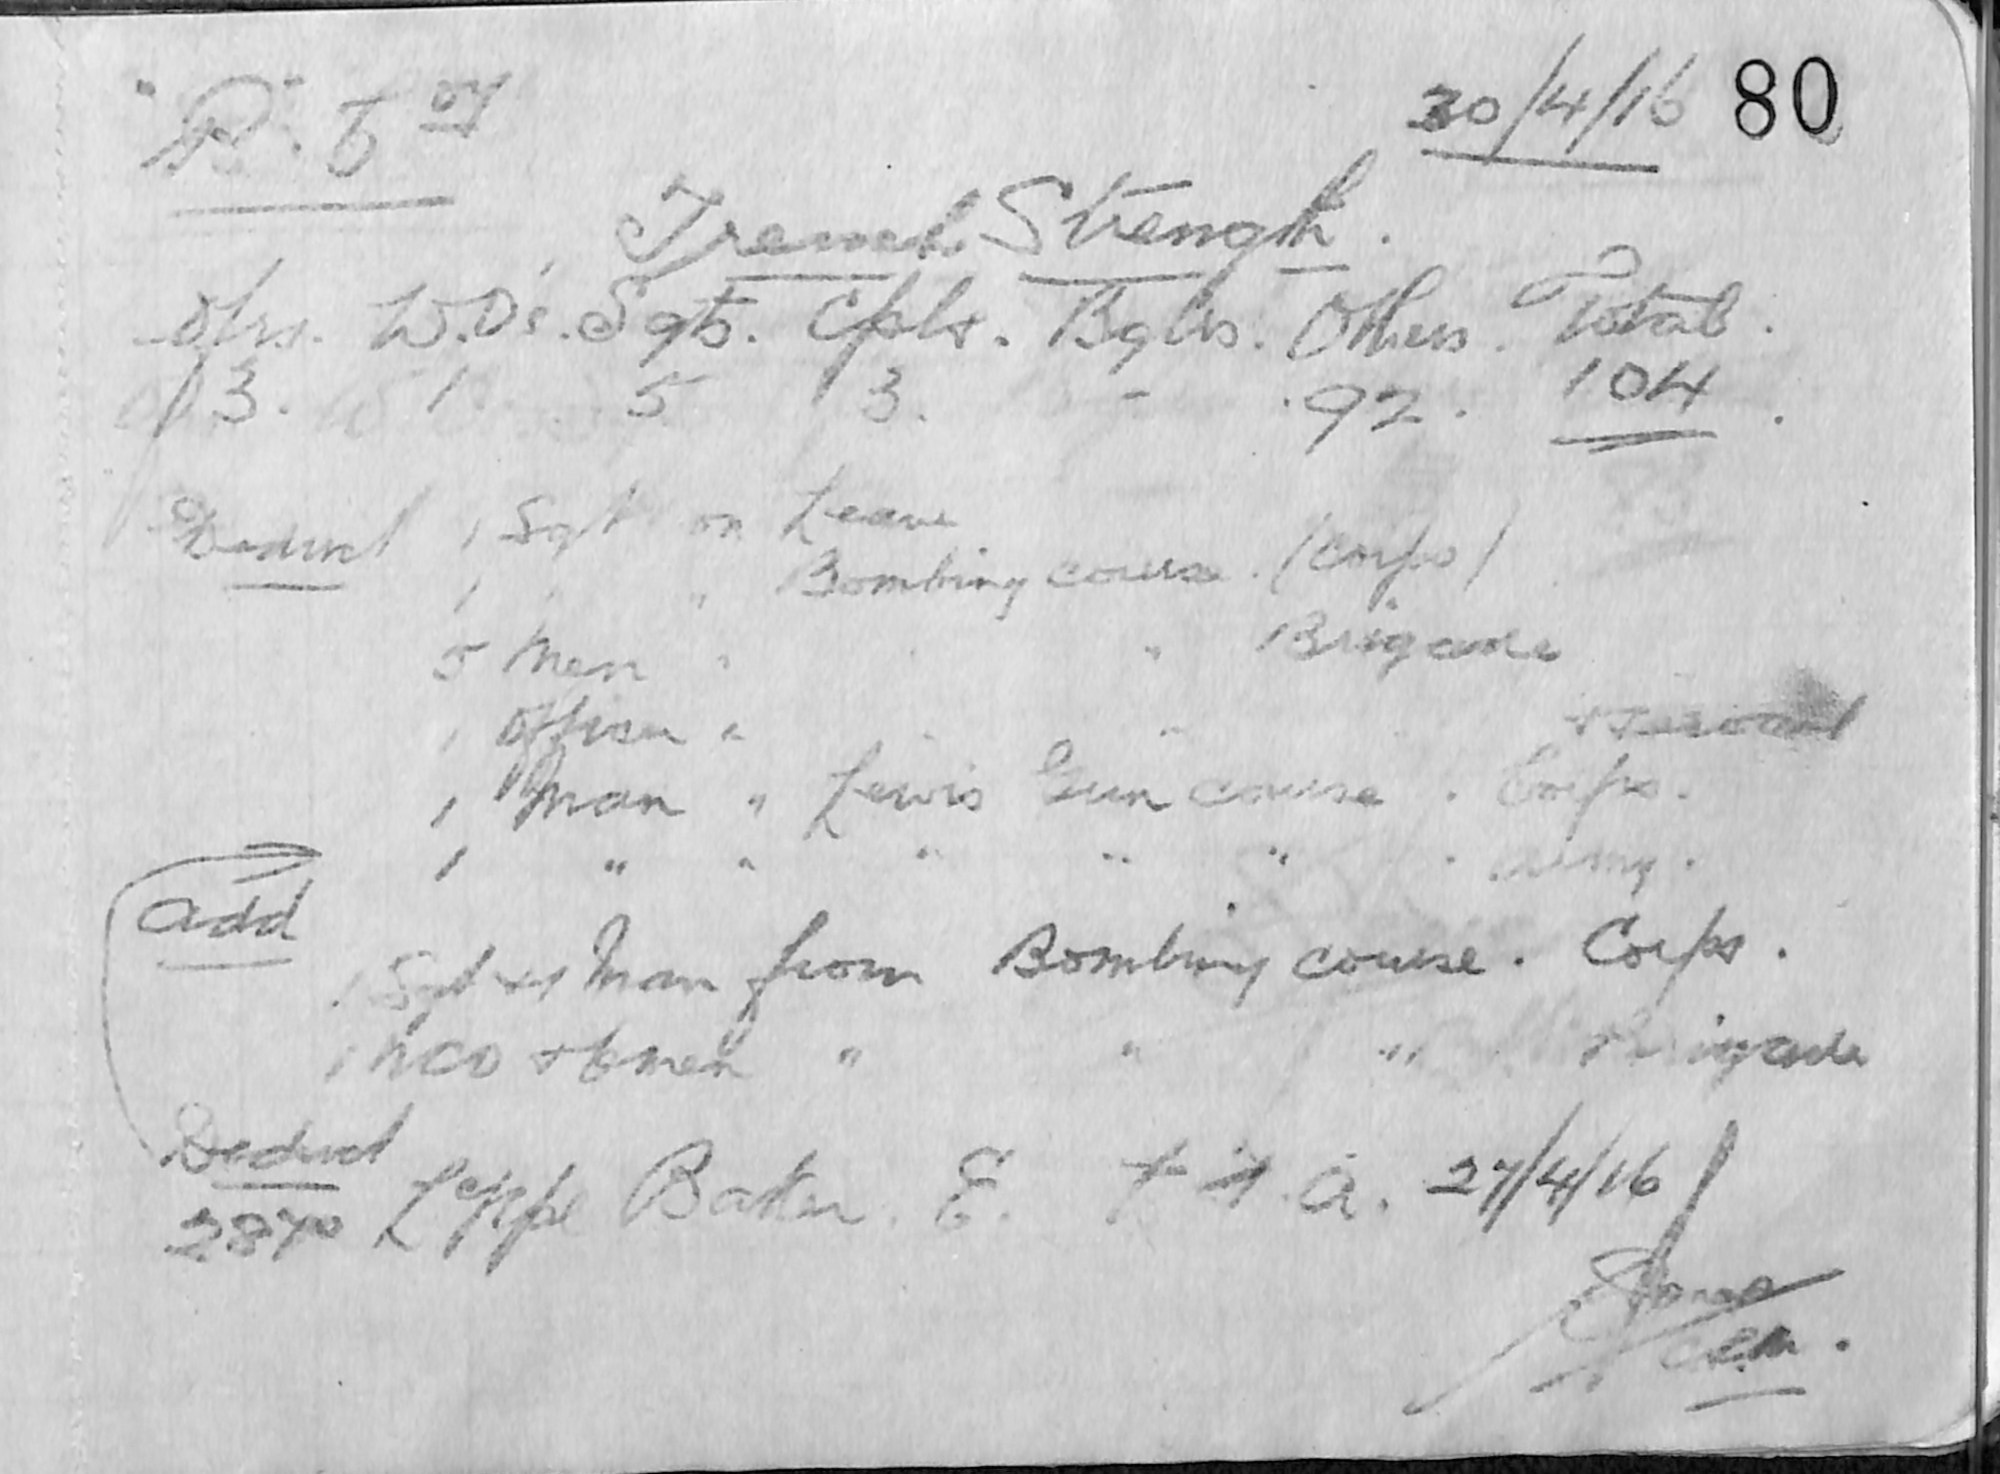 30/4/16 80
Trench Strength.
Ofrs. W.O's. Sgts. Cpls. Bglrs. Others. Total.
3. 1 5 3. - 92. 104.
Deduct 1 Sgt on Leave
1 " " Bombing course. (Corps)
5 Men " " " Brigade
1 Officer " " " + servant
1 Man " Lewis Gun course. Corps.
1 " " " " " . Army.
Add
1 Sgt + 1 Man from Bombing course. Corps.
1 NCO + 6 men " " " Brigade
Deduct
2870 L/Cpl Baker. E. K.I.A. 27/4/16
CSM.